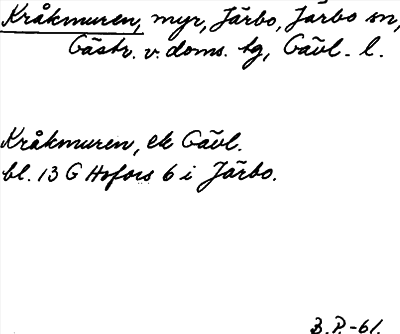 Kråkmuren, myr, Järbo, Järbo sn,
Gästr. v. doms. tg, Gävl. l.
Kråkmuren, ek Gävl.
bl. 13 G Hofors 6 i Järbo.
B.P.-61.